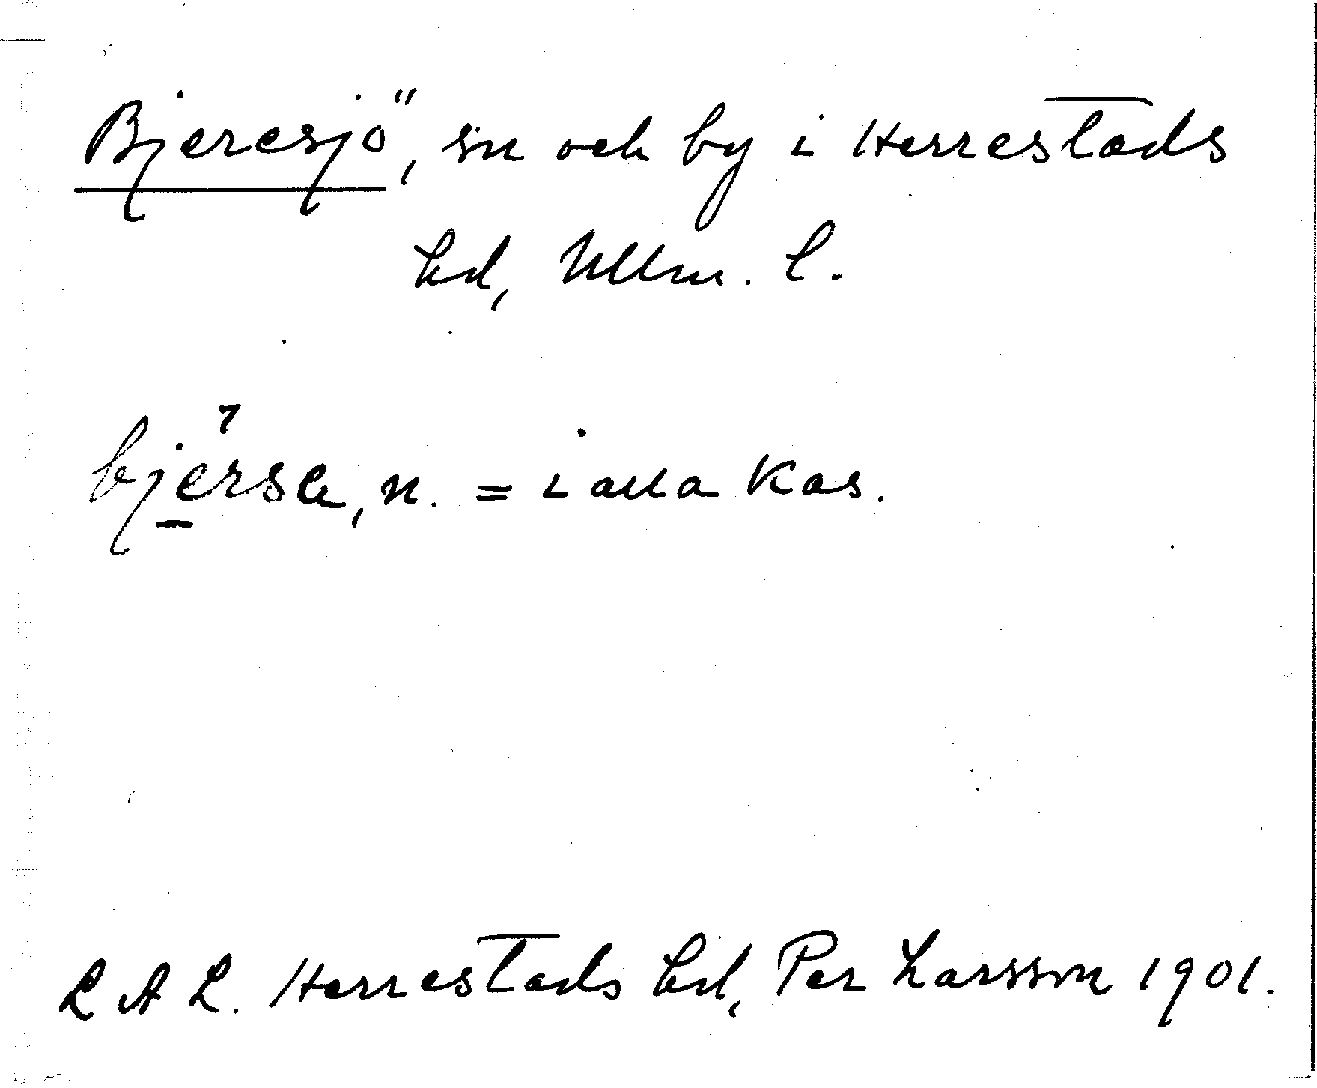 Bjeresjö, sn och by i Herrestads
hd, Mlm. l.
bjersa, n. = i alla kas.
L A L. Herrestads hd, Per Larsson 1901.